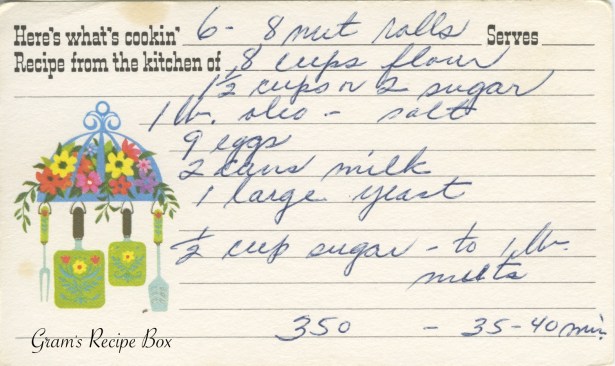 Here's what's cookin' 6-8 nut rolls Serves
Recipe from the kitchen of 8 cups flour
1½ cups or 2 sugar
1 lb. oleo - salt
9 eggs
2 cans milk
1 large yeast
½ cup sugar - to 1 lb.
nuts
350 - 35-40 min.
Gram's Recipe Box